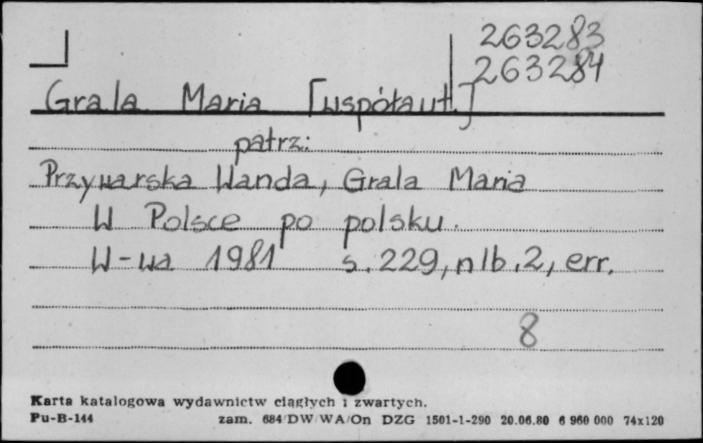 263283
263284
Grala Maria [współaut.]
patrz:
Przywarska Wanda, Grala Maria
W Polsce po polsku.
W-wa 1981 s. 229, nlb. 2, err.
8
Karta katalogowa wydawnictw ciągłych i zwartych.
Pu-B-144 zam. 684/DW/WA/On DZG 1501-1-290 20.06.80 6 960 000 74x120